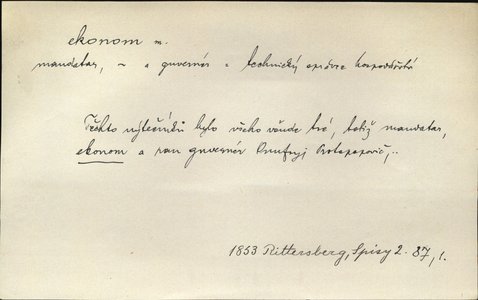 ekonom m.
mandatar, ~ a guvernér = technický správce hospodářství
Těchto výtečníků bylo všeho všude tré, totiž mandatar,
ekonom a pan guvernér Onufryj Protazovič,..
1853 Rittersberg, Spisy 2. 87, 1.